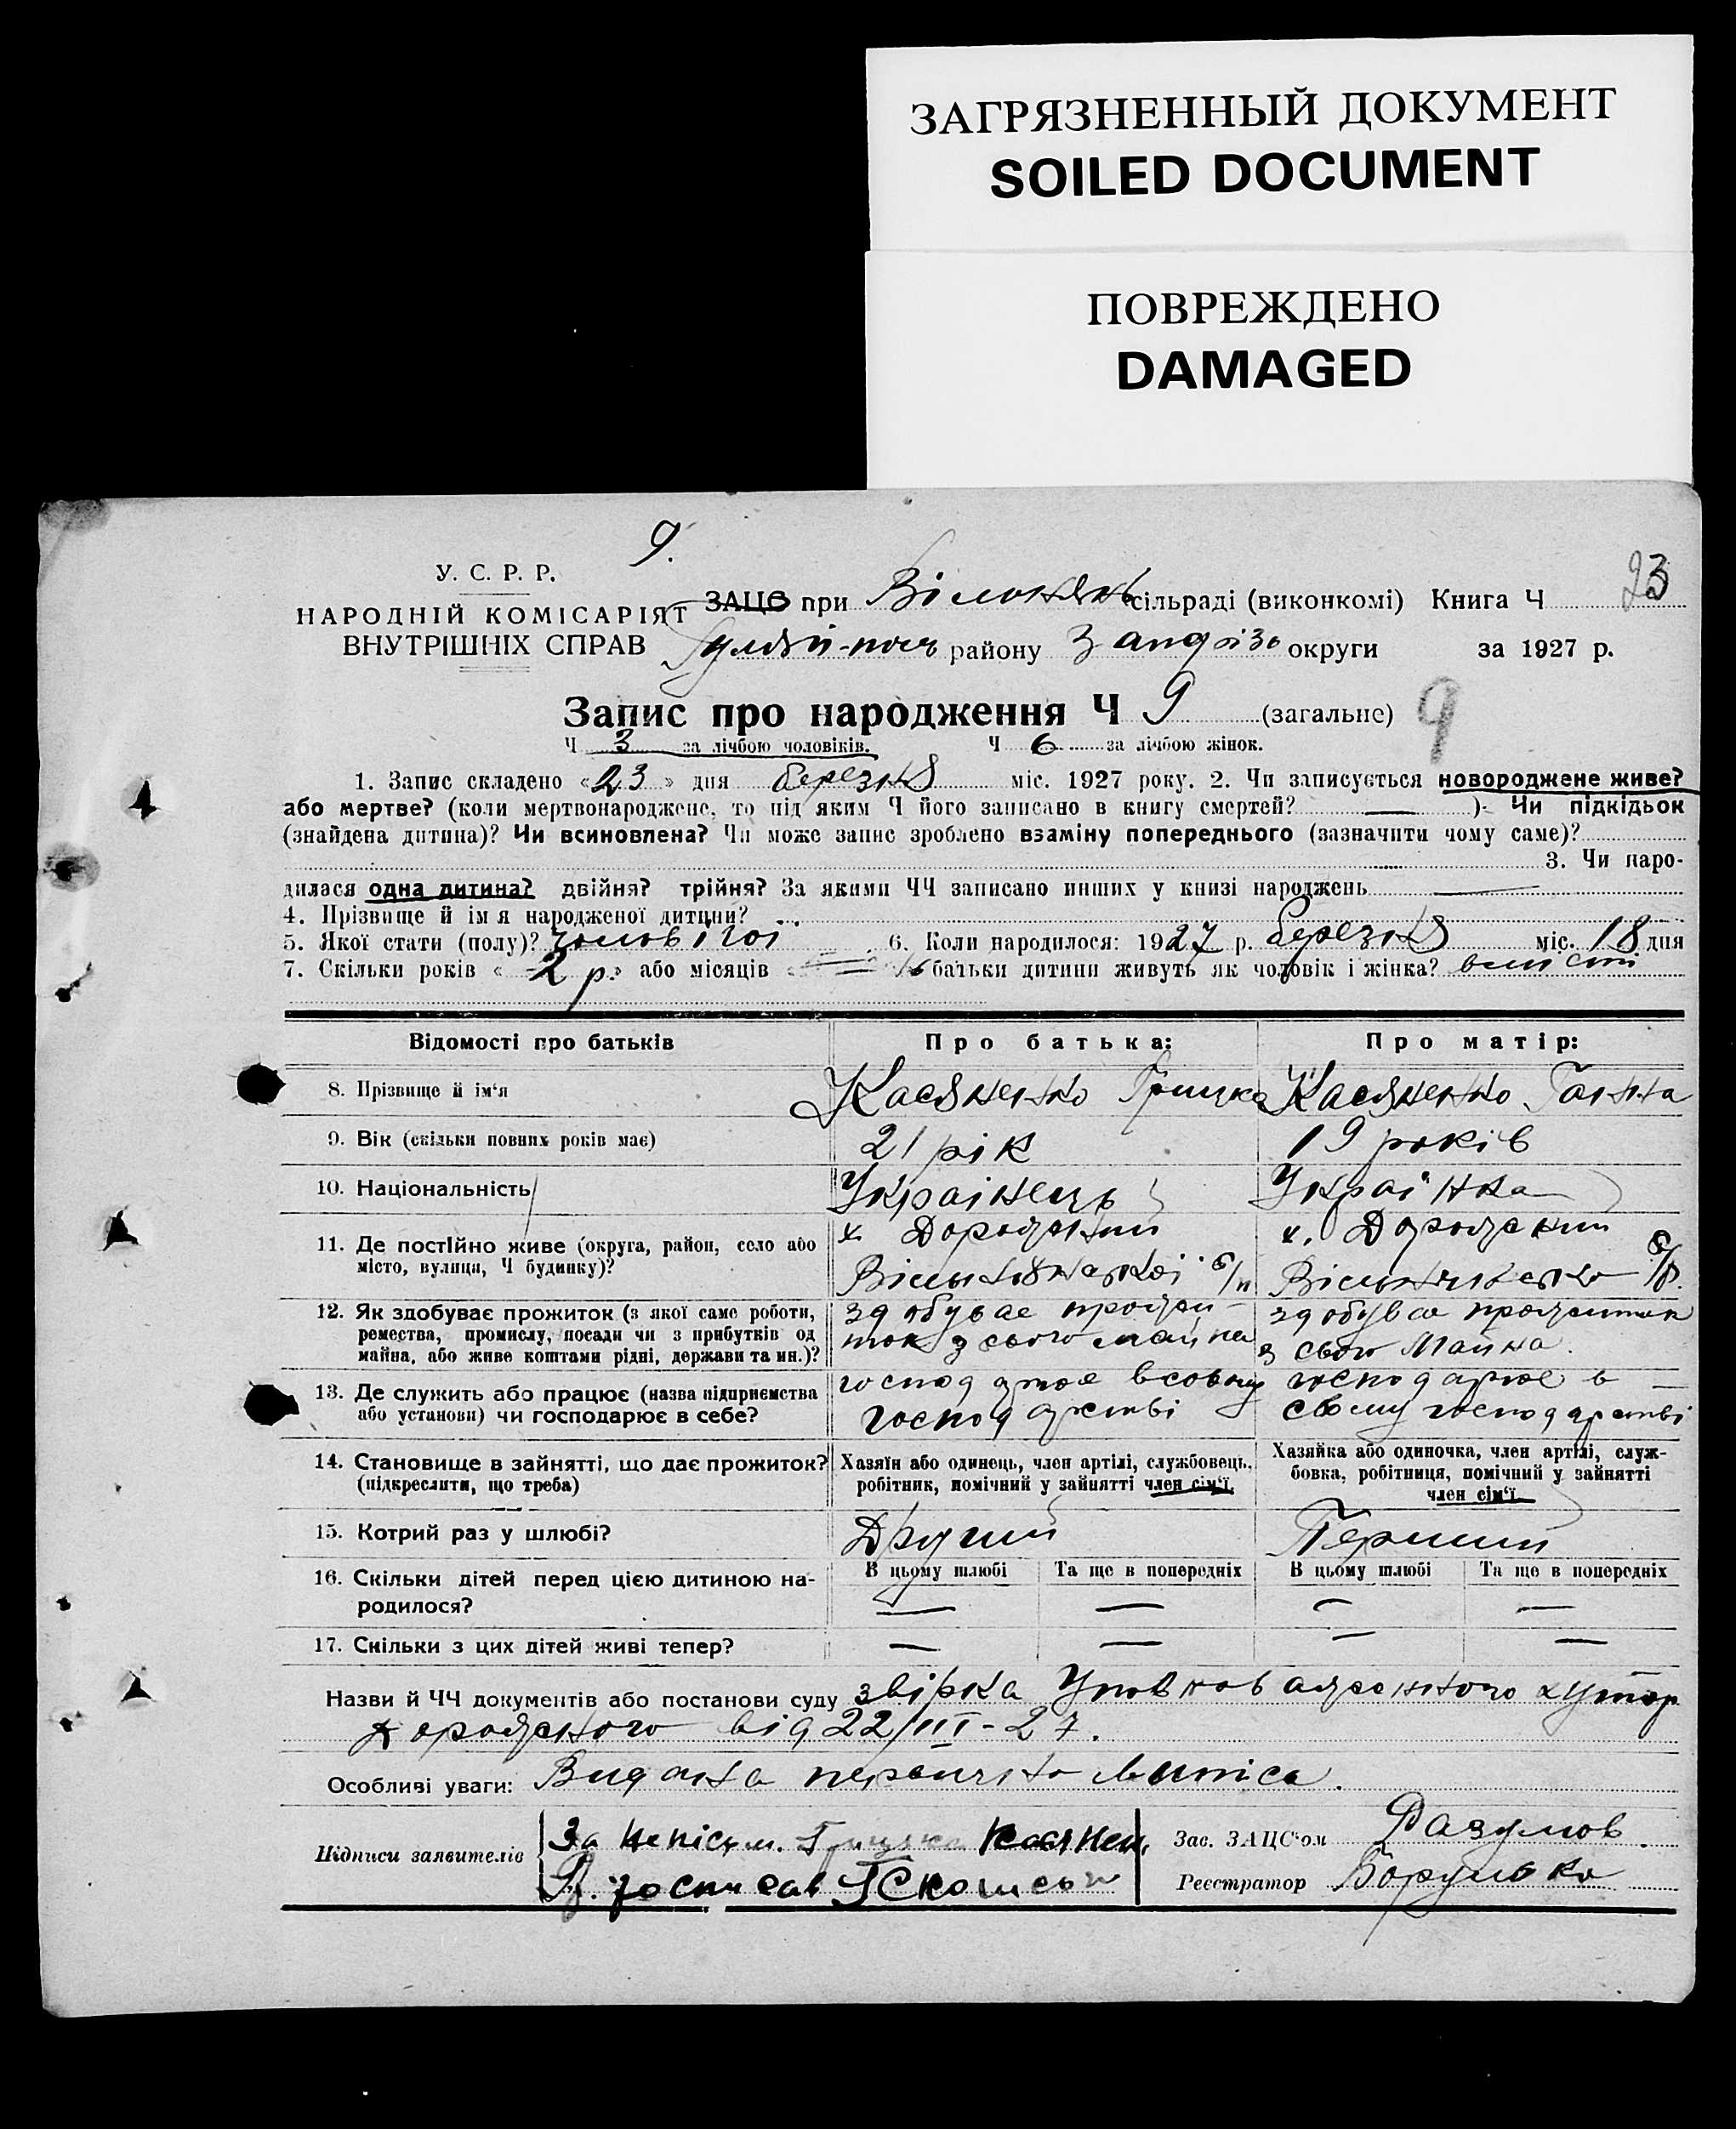 ЗАГРЯЗНЕННЫЙ ДОКУМЕНТ
SOILED DOCUMENT
ПОВРЕЖДЕНО
DAMAGED
9.
У. С. Р. Р.
НАРОДНІЙ КОМІСАРІЯТ
ВНУТРІШНІХ СПРАВ
ЗАЦС при сільраді (виконкомі) Книга Ч 23
Гуляй-поль району Запоріз округи за 1927 р.
Запис про народження Ч 9 (загальне) 9
Ч 3 за лічбою чоловіків. Ч 6 за лічбою жінок.
1. Запис складено «23» дня березня міс. 1927 року. 2. Чи записується новороджене живе?
або мертве? (коли мертвонароджене, то під яким Ч його записано в книгу смертей? — ). Чи підкідьок
(знайдена дитина)? Чи всиновлена? Чи може запис зроблено взаміну попереднього (зазначити чому саме)?
3. Чи наро-
дилася одна дитина? двійня? трійня? За якими ЧЧ записано инших у книзі народжень —
4. Прізвище й ім я народженої дитини?
5. Якої стати (полу)? чоловічої 6. Коли народилося: 1927 р. березня міс. 18 дня
7. Скільки років « 2 р.» або місяців « — батьки дитини живуть як чоловік і жінка? вмісті
Відомості про батьків Про батька: Про матір:
8. Прізвище й ім‘я Касяненко Грицко Касяненко Ганна
9. Вік (скільки повних років має) 21 рік 19 років
10. Національність Українець Українка
11. Де постійно живе (округа, район, село або
місто, вулиця, Ч будинку)?
х. Дорожний
с/р
х. Дорожний
с/р.
12. Як здобуває прожиток (з якої саме роботи,
ремества, промислу, посади чи з прибутків од
майна, або живе коштами рідні, держави та ин.)?
здобуває прожи-
ток з свого майна
здобува прожиток
з свого Майна.
13. Де служить або працює (назва підприємства
або установи) чи господарює в себе?
господарює в совому
господарстві
господарює в —
своему господарстві
14. Становище в зайнятті, що дає прожиток?
(підкреслити, що треба)
Хазяїн або одинець, член артілі, службовець,
робітник, помічний у зайнятті член сім‘ї.
Хазяйка або одиночка, член артілі, служ-
бовка, робітниця, помічний у зайнятті
член сім‘ї
15. Котрий раз у шлюбі? Другий Перший
16. Скільки дітей перед цією дитиною на-
родилося?
В цьому шлюбі Та ще в попередніх В цьому шлюбі Та ще в попередніх
— — — —
17. Скільки з цих дітей живі тепер? — — — —
Назви й ЧЧ документів або постанови суду звірка Уповноваженого хутор
Дорожнього від 22/III-27.
Особливі уваги: Видана первична випіса.
Підписи заявителів За непісьм. Грицька Касянен.
росписав
Зав. ЗАЦС‘ом Разумов
Реєстратор Борулько